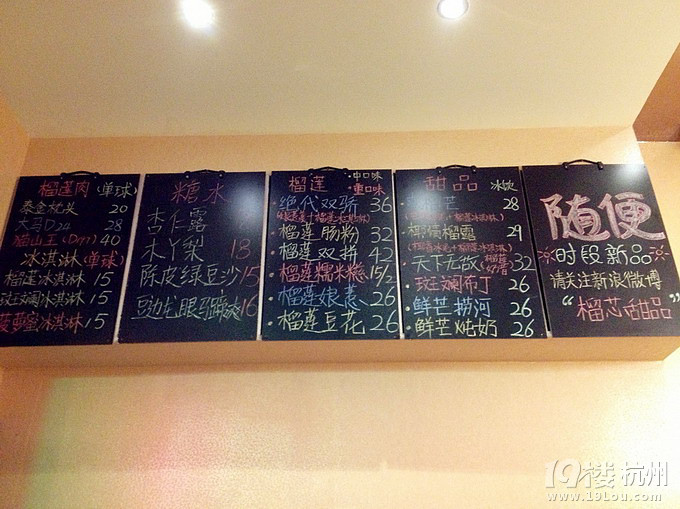 榴莲肉(单球)
泰金枕头 20
大马D24 28
猫山王(D197) 40
冰淇淋(单球)
榴莲冰淇淋 15
斑斓冰淇淋 15
菠萝蜜冰淇淋 15
糖水
杏仁露
木丫梨 18
陈皮绿豆沙 15
16
榴莲
·中口味
·重口味
·绝代双骄 36
·榴莲肠粉 32
·榴莲双拼 42
·榴莲糯米糍 15/2
·榴莲娘惹 26
·榴莲豆花 26
甜品 冰饮
28
榴露 29
天下无敌 32
·斑斓布丁 26
·鲜芒捞河 26
·鲜芒炖奶 26
随便
时段新品
请关注新浪微博
“榴芯甜品”
19楼杭州
www.19lou.com